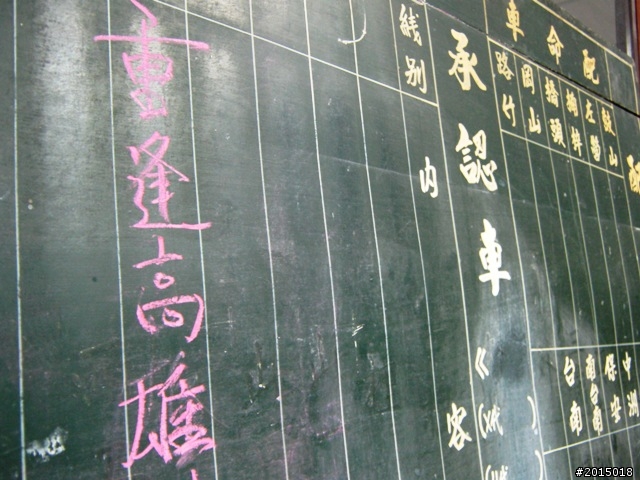 配命車
配
路竹
岡山
橋頭
楠梓
左營
鼓山
台南
南台南
保安
中洲
承認車
《
(代)
客
綫別
内
重逢高雄
#2015018